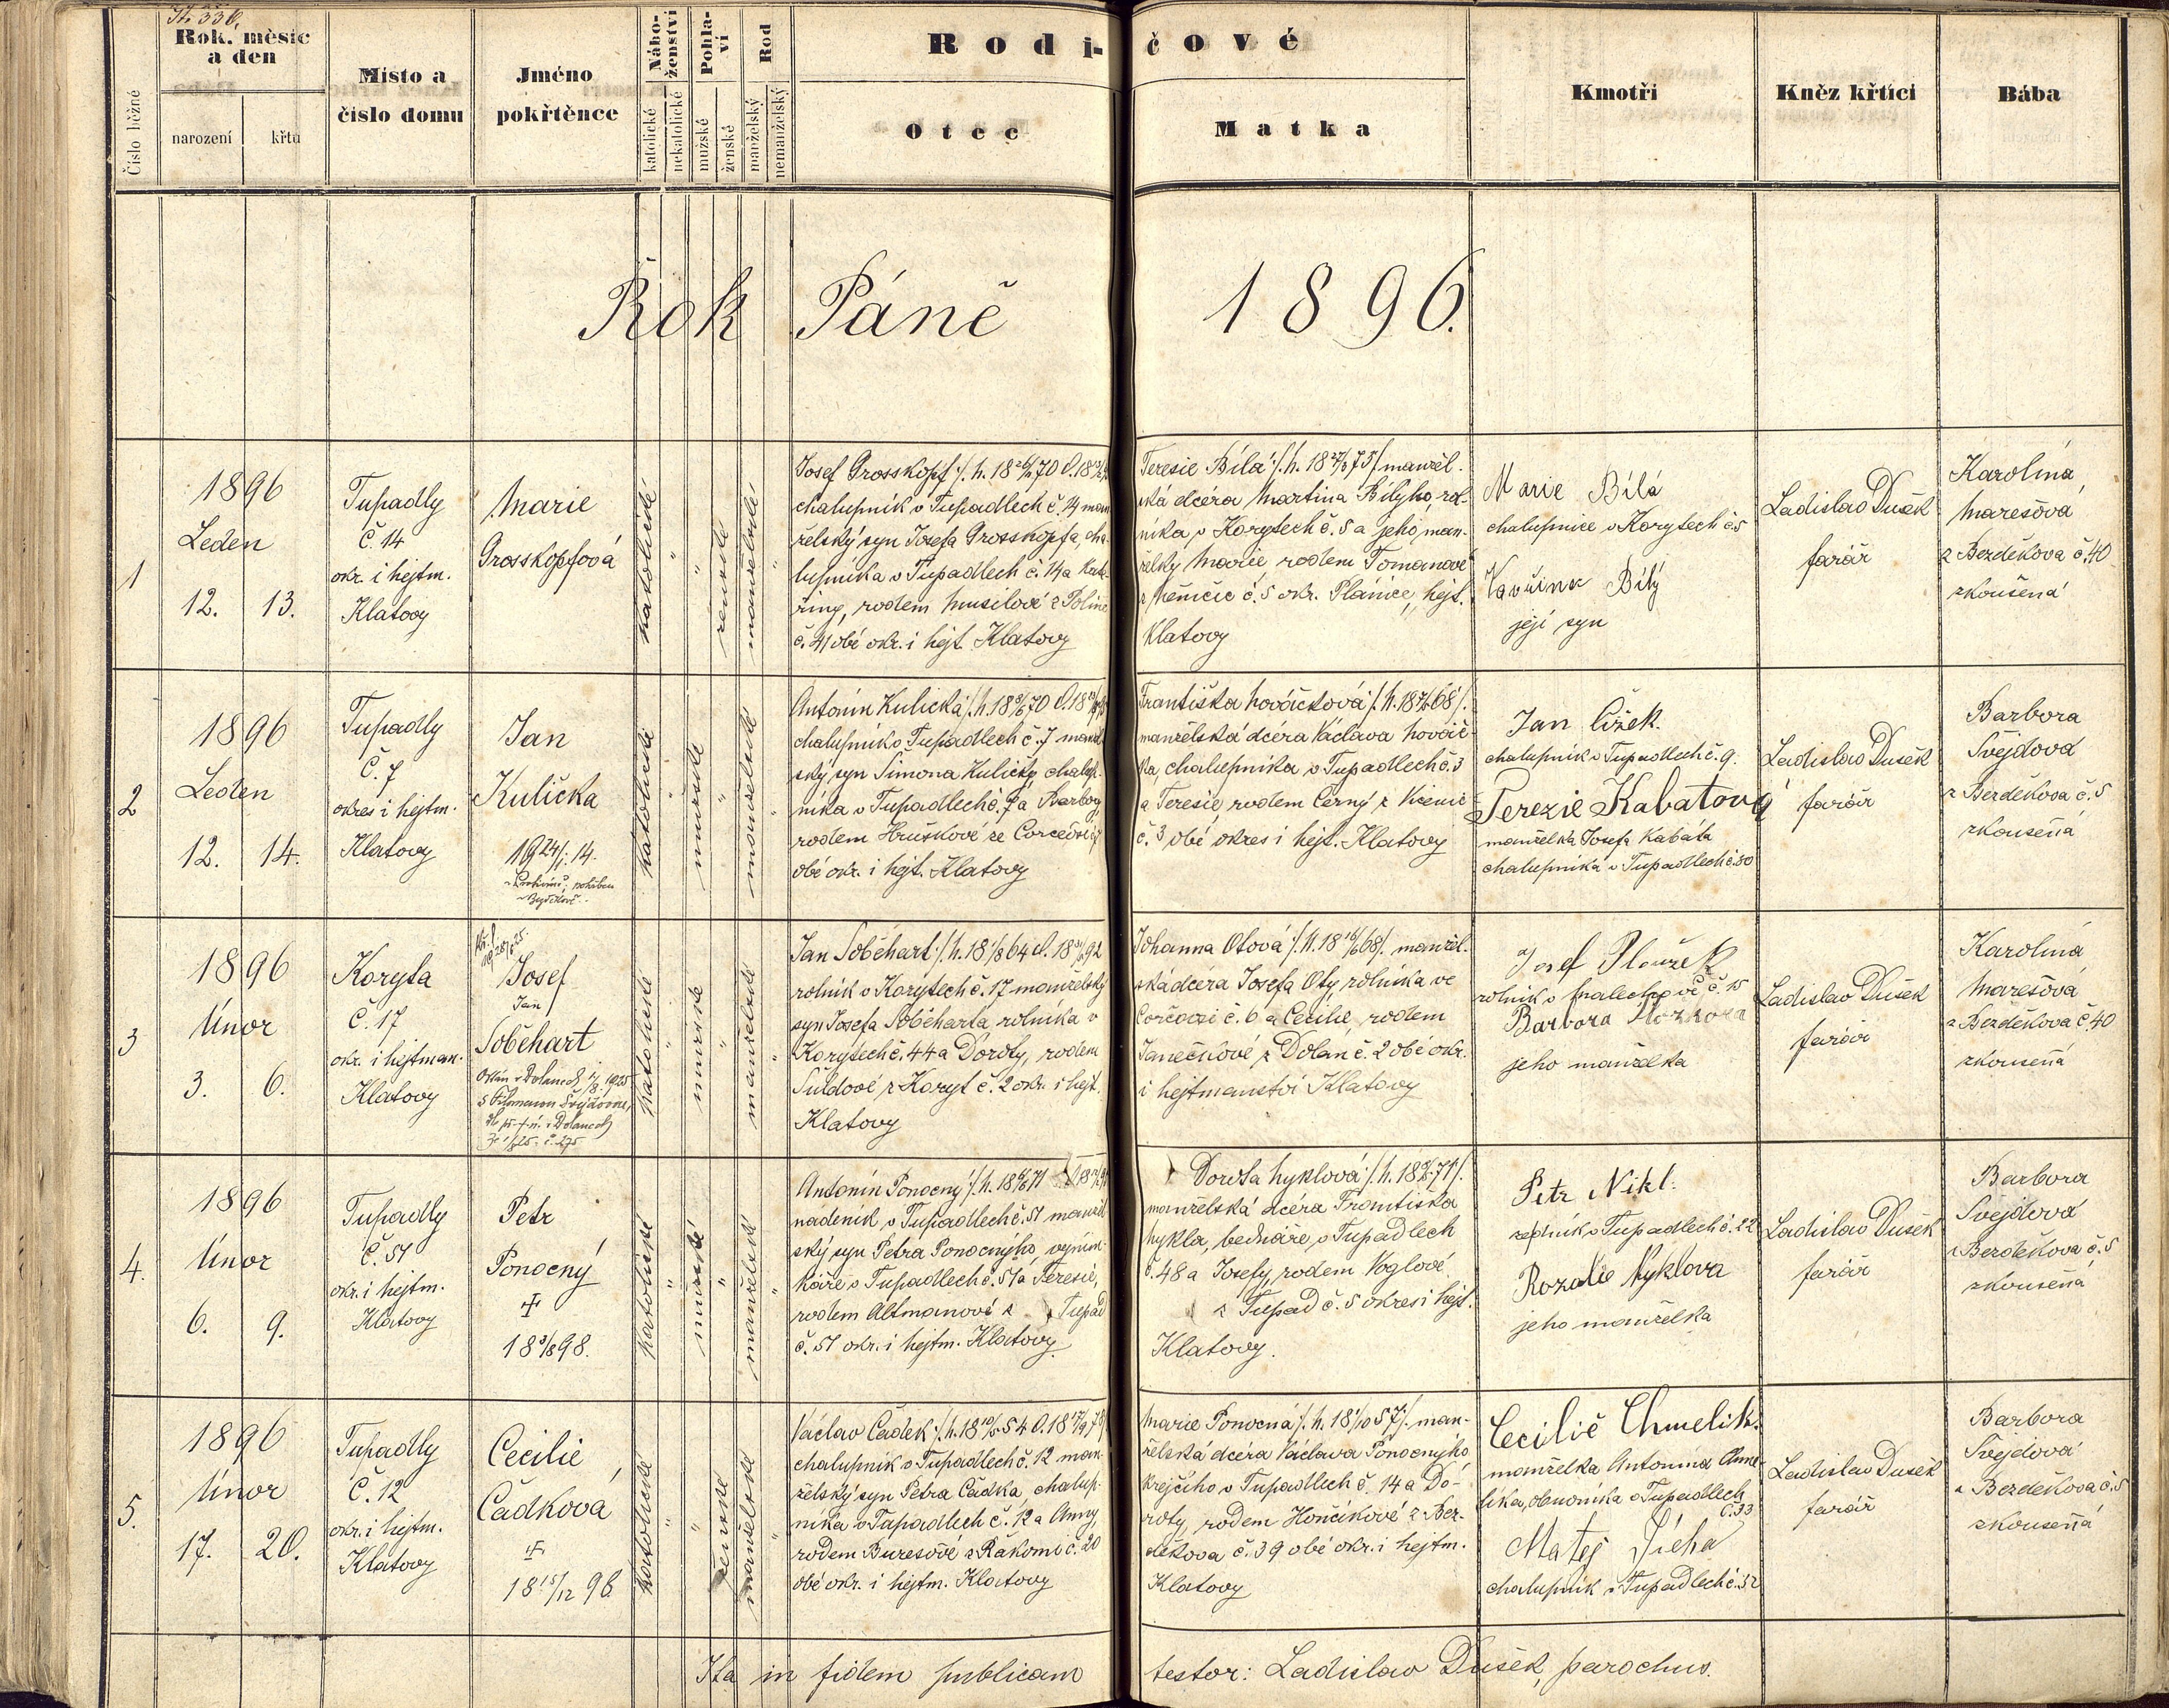 Rok, měsíc
a den
narození
křtu
Číslo běžné
Místo a
číslo domu
Jméno
pokřtěnce
Nábo-
ženství
katolické
nekatolické
Pohla-
ví
mužské
ženské
Rod
manželský
nemanželský
Rodi-
čové
Otec
Matka
Kmotři
Kněz křtící
Bába
Rok Páně 1896.
1
1896
Leden
12. 13.
Tupadly
č. 14
okr. i hejtm.
Klatovy
Marie
Grosskopfová
katolické
ženské
manželské
Josef Grosskopf
chalupník v Tupadlech č. 14 man
želský syn Josefa Grosskopfa, cha-
lupníka v Tupadlech č. 14 a Kate-
řiny, rodem Musilové z Polině
č. 41 obé okr. i hejt. Klatovy
Teresie Bílá manžel.
ská dcéra Martina Bílýho, rol-
níka v Korytech č. 5 a jeho man-
želky Marie, rodem Tomanové
č. 5 okr. Plánice, hejt.
Klatovy
Marie Bílá
chalupnice v Korytech č 5
Vavřinec Bílý
její syn
Ladislav Dušek
farář
Karolina
Marešová
z Bezděkova č. 40
zkoušená
2
1896
Leden
12. 14.
Tupadly
Č. 7
okres i hejtm.
Klatovy
Jan
Kulička
katolické
mužské
manželské
Antonín Kulička
chalupník v Tupadlech č. 7 manžel
ský syn Šimona Kuličky, chalup-
níka v Tupadlech č. 7 a Barbory
rodem Hruškové ze
obé okr. i hejt. Klatovy
Františka Nováčková
manželská dcéra Václava Nováč-
ka, chalupníka v Tupadlech č. 3
a Teresie rodem Černý z
č. 3 obé okres i hejt. Klatovy
Jan Čížek
chalupník v Tupadlech č. 9.
Terezie Kabatová
manželka Josefa Kabáta
chalupníka v Tupadlech č. 30
Ladislav Dušek
farář
Barbora
Švejdová
z Bezděkova č. 5
zkoušená
3
1896
Únor
3. 6.
Koryta
Č. 17
okr. i hejtman.
Klatovy
Josef
Jan
Soběhart
katolické
mužské
manželské
Jan Soběhart
rolník v Korytech č. 17 manželský
syn Josefa Soběharta, rolníka v
Korytech č. 44 a Doroty, rodem
z Koryt č. 2 okr. i hejt.
Klatovy
Johanna Otová manžel.
ská dcéra Josefa Oty, rolníka ve
č. 6 a Cecilie, rodem
Janečkové z Dolan č. 2 obé okr.
i hejtmanství Klatovy
Josef
rolník v Malechově č. 15
Barbora
jeho manželka
Ladislav Dušek
farář
Karolina
Marešová
z Bezděkova č. 40
zkoušená
4.
1896
Únor
6. 9.
Tupadly
Č. 51
okr. i hejtm.
Klatovy
Petr
Ponocný
18 3/8 98.
katolické
mužské
manželské
Antonín Ponocný
nádeník v Tupadlech č. 51 manžel
ský syn Petra Ponocnýho, výmin-
káře v Tupadlech č. 51 a Teresie,
rodem Altmanové z Tupad
č. 51 okr. i hejtm. Klatovy
Dorota Nyklová
manželská dcéra Františka
Nykla, bednáře v Tupadlech
č. 48 a Josefy, rodem Voglové
z Tupad č. 5 okres i hejt.
Klatovy.
Petr Nikl
v Tupadlech č. 22
Rozalie Nyklova
jeho manželka
Ladislav Dušek
farář
Barbora
Švejdová
z Bezděkova č. 5
zkoušená
5.
1896
Únor
17. 20.
Tupadly
Č. 12
okr. i hejtm.
Klatovy
Cecilie
Čadková
18 15/12 96
katolické
ženské
manželské
Václav Čadek
chalupník v Tupadlech č. 12 man-
želský syn Petra Čadka, chalup-
níka v Tupadlech č. 12 a Anny
rodem Burešové z Rákomi č. 20
obé okr. i hejtm. Klatovy
Marie Ponocná man-
želská dcéra Václava Ponocnýho
krejčího v Tupadlech č. 14 a Do-
roty, rodem Hončíkové z Bez-
děkova č. 39 obé okr. i hejtm.
Klatovy
Cecilie Chmelik.
manželka Antonína Chme-
líka, obuvníka v Tupadlech
č. 33
Matej Jícha
chalupník v Tupadlech č. 52
Ladislav Dušek
farář
Barbora
Švejdová
z Bezděkova č. 5
zkoušená
Ita in fidem publicam testor: Ladislav Dušek, parochus.